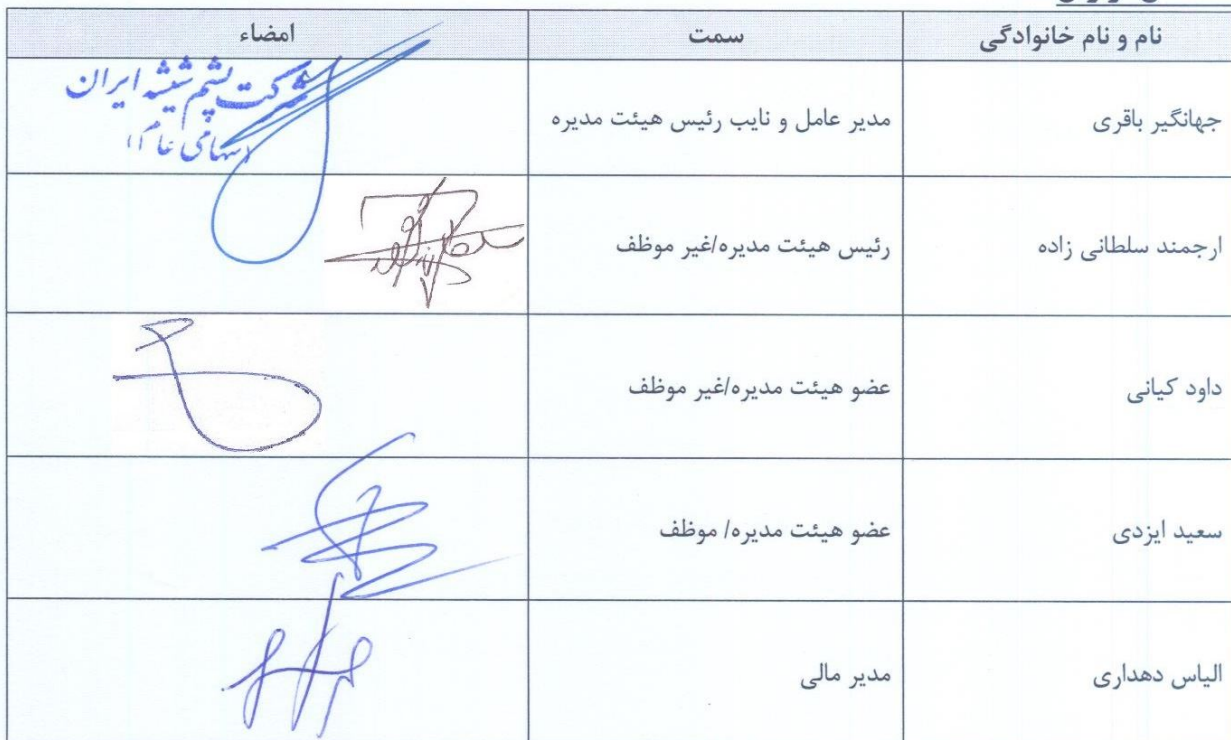 نام و نام خانوادگی سمت امضاء
جهانگیر باقری مدیر عامل و نایب رئیس هیئت مدیره
شرکت پشم شیشه ایران
(سهامی عام)
ارجمند سلطانی زاده رئیس هیئت مدیره/غیر موظف
داود کیانی عضو هیئت مدیره/غیر موظف
سعید ایزدی عضو هیئت مدیره/ موظف
الیاس دهداری مدیر مالی